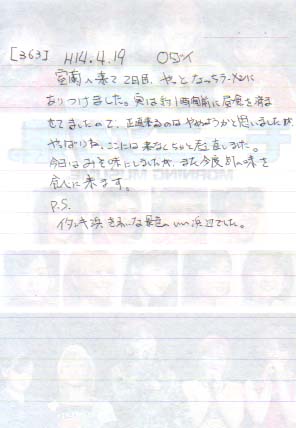 [363] H14.4.19 OSツイ
室蘭へ来て2日目、やっとなっちラーメンに
ありつけました。実は約1時間前に昼食を済ま
せてましたので、正直来るのはやめようかと思いましたが
やっぱりね、ここには来なくちゃと思い直しました。
今日はみそ味にしましたが、また今度別の味を
食べに来ます。
P.S.
イタンキ浜きれいな景色のいい浜辺でした。
MORNING MUSUME